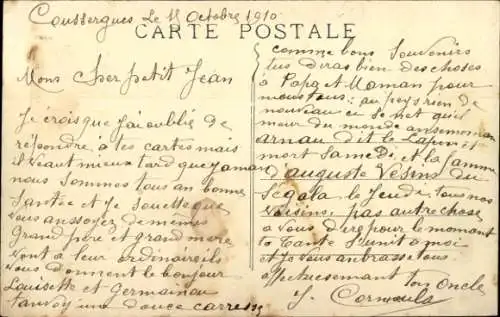 Coussergues Le 11 Octobre 1910
CARTE POSTALE
Mons Cher petit Jean
Je crois que j'ai oublié de
répondre a tes cartes mais
il veaut mieux tard que jamais
nous sommes tous an bonne
Santée et je souette que
vous anssoyez de mêmes
Grand père et grand mere
vont a leur ordinaire ils
vous donnent le bonjour
Louisette et Germain
t'anvoy une douce caresse
comme bons Souvenirs
tu diras bien des choses
a Papa et Maman pour
nous tous; au peys rien de
nouveau ce ne net qu'il
meur du monde
arnau dit le Lapin et
mort Samedi, et la famme
d'auguste Vesins du
Ségala, le Jeudi tous nos
Voisins, pas autre chose
a vous dire pour le moment
ta Tante S'unit a moi
et Je vous anbrasse tous
affectueusement ton Oncle
J.